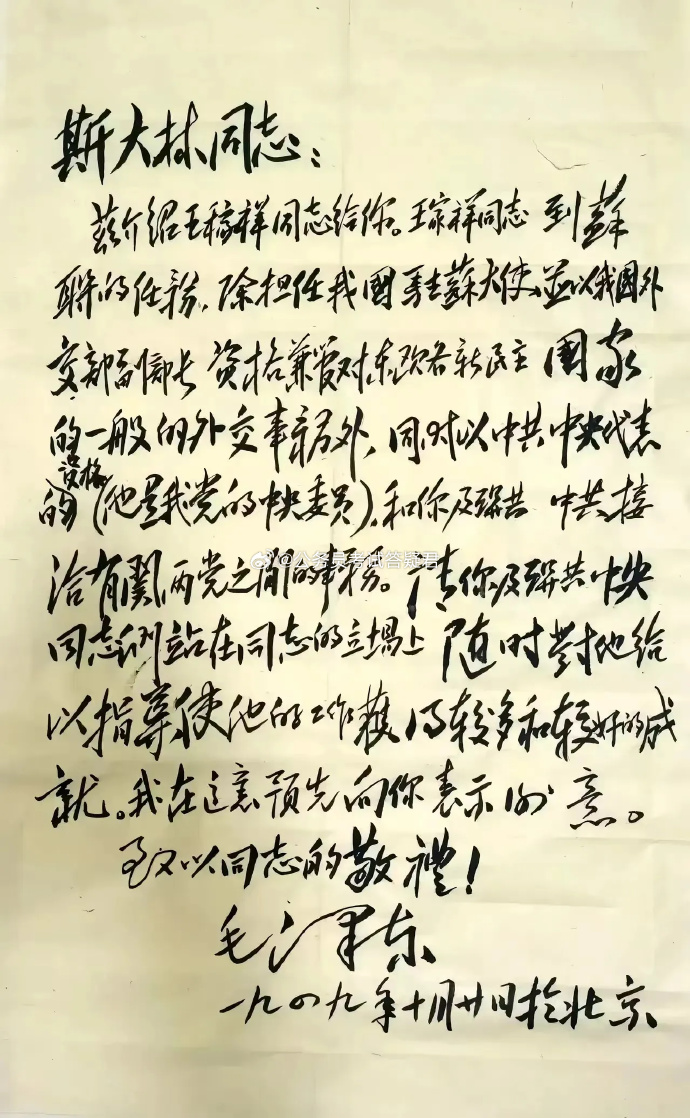 斯大林同志：
兹介绍王稼祥同志给你。王稼祥同志到蘇
联的任务，除担任我國驻蘇大使、並以我國外
交部副部长资格兼管对东欧各新民主國家
的一般的外交事务外，同时以中共中央代表
资格
的（他是我党的中央委员），和你及联共中央接
洽有関两党之间的事务。请你及联共中央
@公务员考试答疑君
同志们站在同志的立場上随时對他给
以指導，使他的工作獲得较多和较好的成
就。我在这里预先向你表示谢意。
致以同志的敬禮！
毛泽东
一九四九年十月廿日於北京